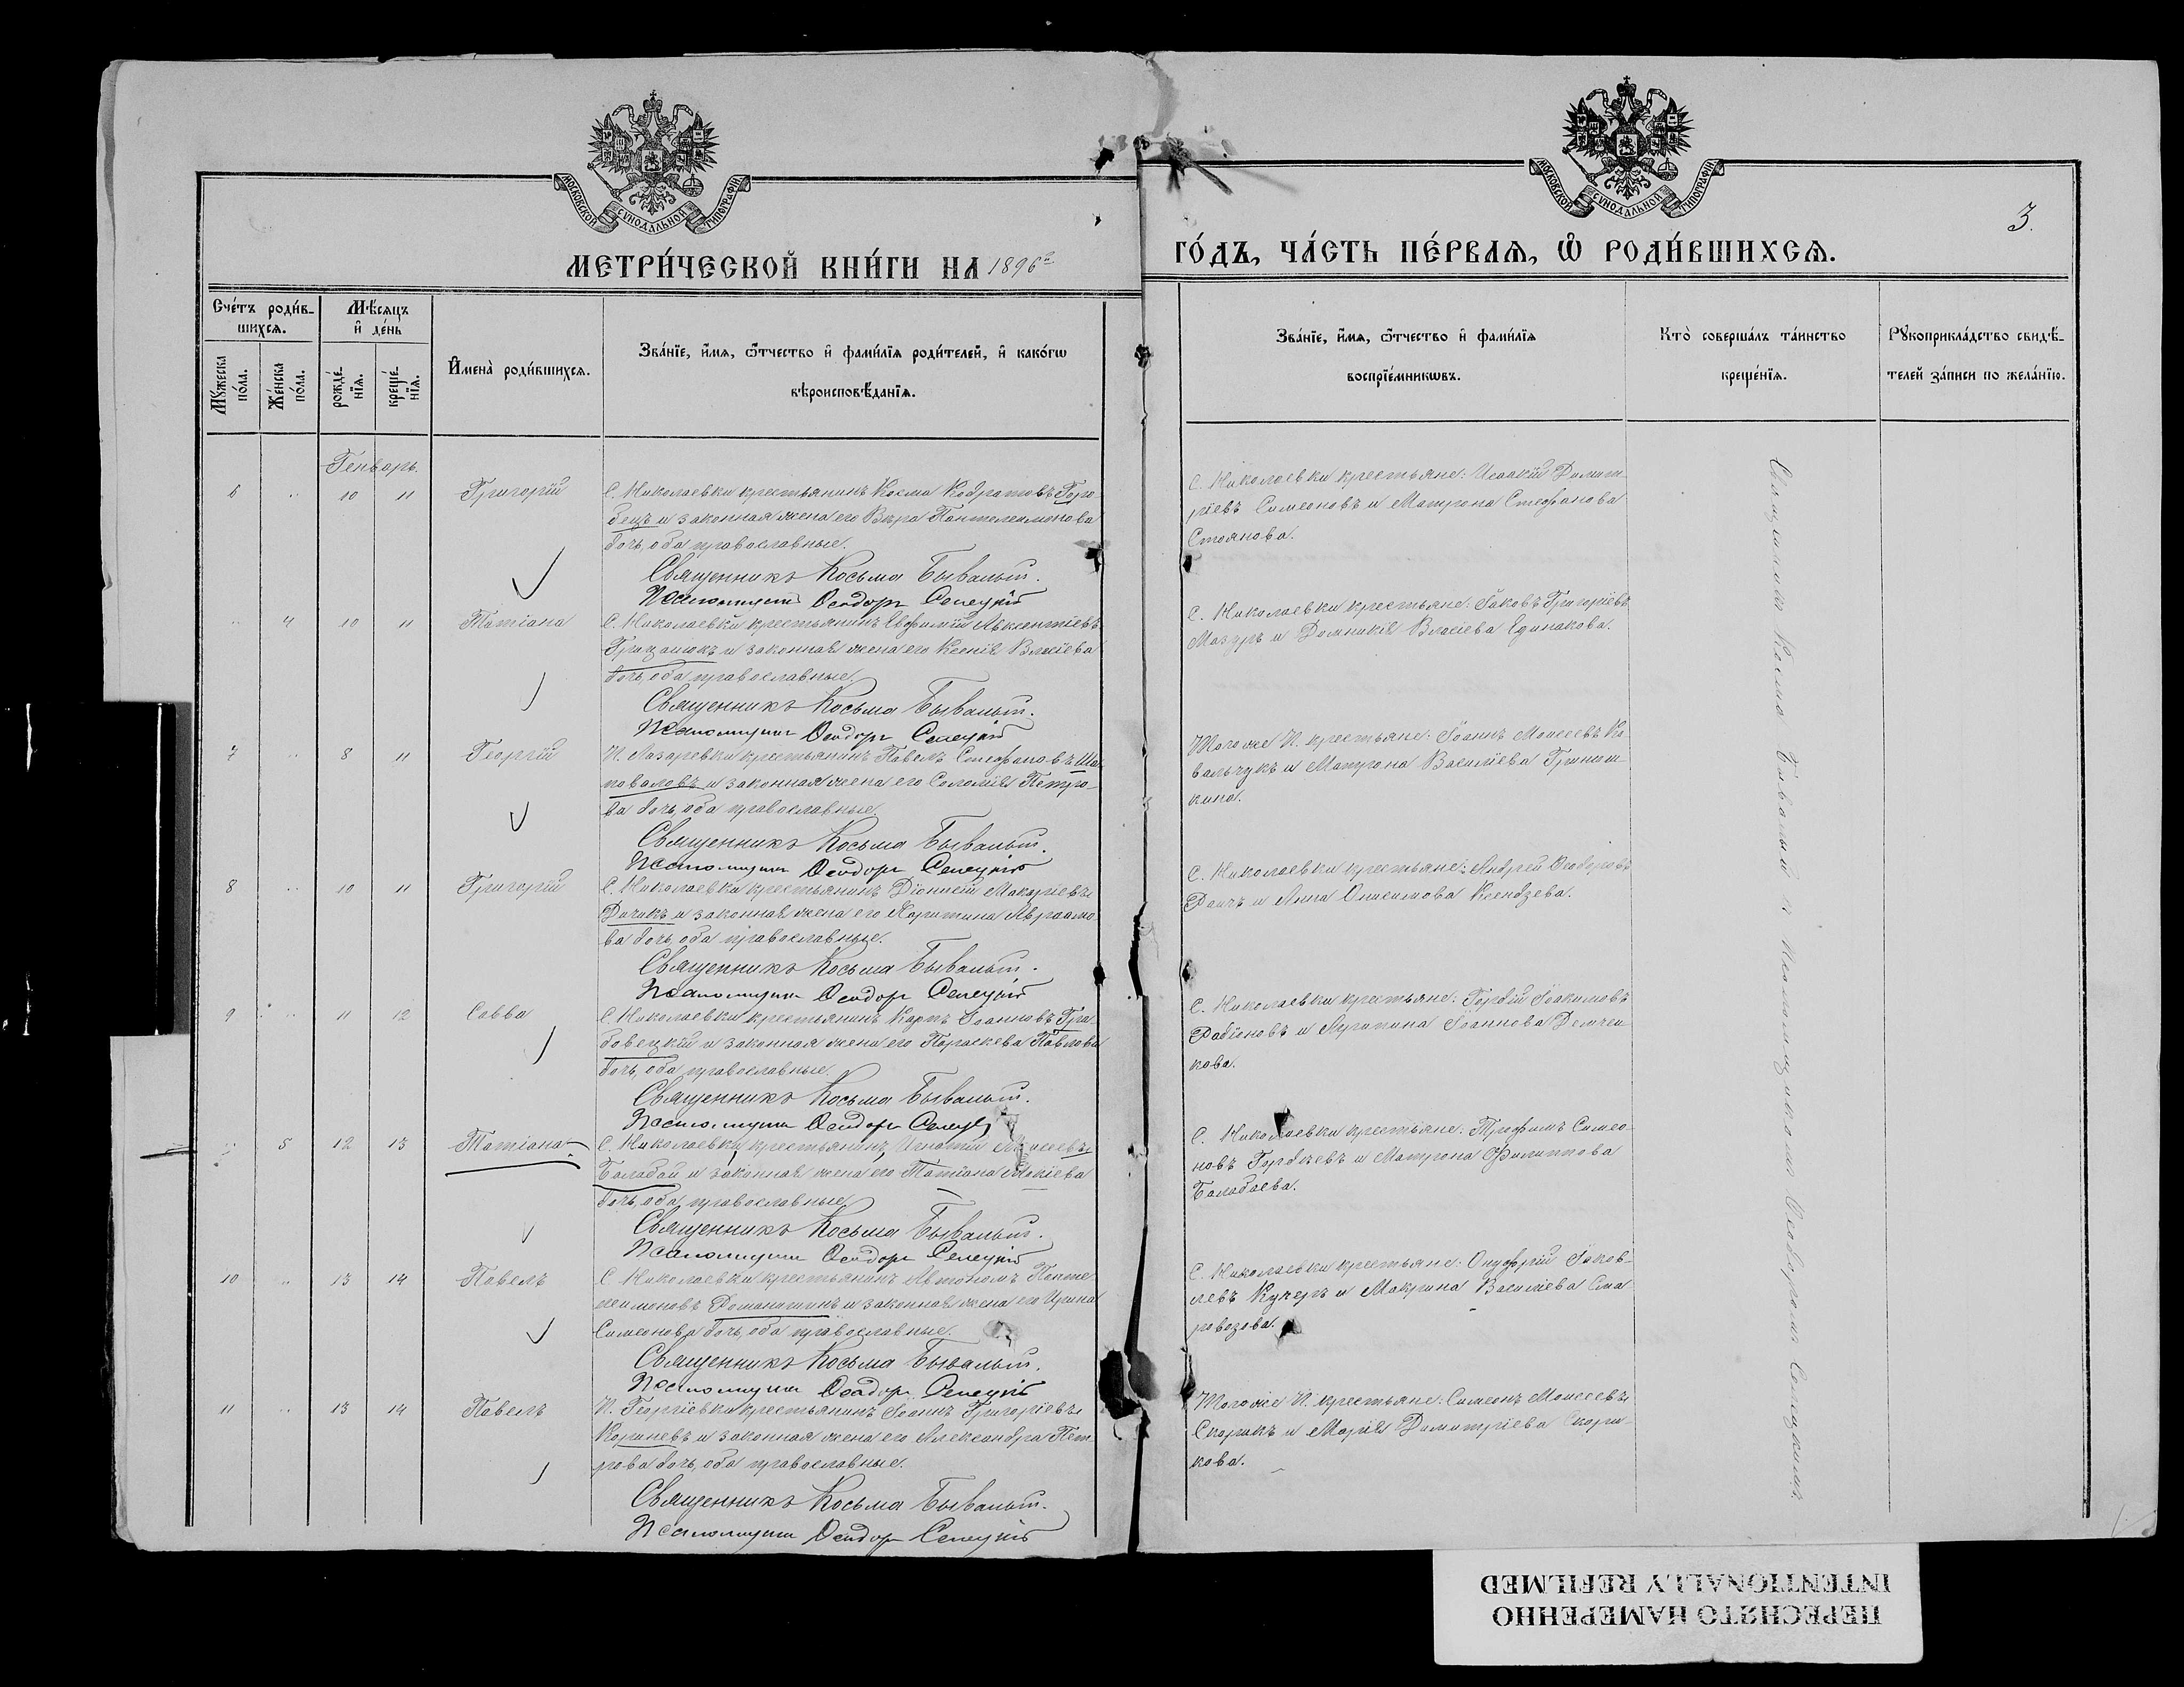 МОСКОВСКОЙ СѴНОДАЛЬНОЙ ТИПОГРАФІИ
МОСКОВСКОЙ СѴНОДАЛЬНОЙ ТИПОГРАФІИ
3.
МЕТРИ́ЧЕСКОЙ КНИ́ГИ НА 1896 г.
ГО́ДЪ, ЧА́СТЬ ПЕ́РВАѦ, Ѡ҆ РОДИ́ВШИХСѦ.
Сче́тъ роди́в-
шихсѧ.
Мѣ́сѧцъ
и҆ де́нь
Мꙋ́жеска
по́ла.
Же́нска
по́ла.
рожде́-
нїѧ.
креще́-
нїѧ.
И҆мена̀ роди́вшихсѧ.
Зва́нїе, и҆́мѧ, ѻ҆́тчество и҆ фами́лїѧ роди́телей, и҆ како́гѡ
вѣроисповѣ́данїѧ.
Зва́нїе, и҆́мѧ, ѻ҆́тчество и҆ фами́лїѧ
воспрїе́мникѡвъ.
Кто̀ соверша́лъ та́инство
креще́нїѧ.
Рꙋкоприкла́дство свидѣ́-
телей за́писи по жела́нїю.
Генварь.
6 " 10 11 Григорій С. Николаевки крестьянинъ Косма Кодратовъ Горо-
бецъ и законная жена его Вѣра Пантелеимонова
дочь, оба православные.
Священникъ Косьма Бывалый.
Псаломщикъ Ѳеодоръ Селецкій
С. Николаевки крестьяне: Исаакій Димит-
ріевъ Симеоновъ и Матрона Стефанова
Стоянова.
" 4 10 11 Татіана С. Николаевки крестьянинъ Евфимій Авксентіевъ
Грицанюкъ и законная жена его Ксенія Власіева
дочь, оба православные.
Священникъ Косьма Бывалый.
Псаломщикъ Ѳеодоръ Селецкій
С. Николаевки крестьяне: Іаковъ Григоріевъ
Мазуръ и Домникія Власіева Единакова.
7 " 8 11 Георгій П. Лазаревки крестьянинъ Павелъ Стефановъ Ша-
поваловъ и законная жена его Соломія Петро-
ва дочь, оба православные.
Священникъ Косьма Бывалый.
Псаломщикъ Ѳеодоръ Селецкій
Того же П. крестьяне: Іоаннъ Моисеевъ Ко-
вальчукъ и Матрона Василіева
8 " 10 11 Григорій С. Николаевки крестьянинъ Діонисій Макаріевъ
и законная жена его Харитина Авраамо-
ва дочь, оба православные.
Священникъ Косьма Бывалый.
Псаломщикъ Ѳеодоръ Селецкій
С. Николаевки крестьяне: Андрей Ѳеодоровъ
и Анна Онисимова Ксендзева.
9 " 11 12 Савва С. Николаевки крестьянинъ Карпъ Іоанновъ Гра-
бовецкій и законная жена его Параскева Павлова
дочь, оба православные.
Священникъ Косьма Бывалый.
Псаломщикъ Ѳеодоръ Селец
С. Николаевки крестьяне: Гордій Іоакимовъ
Радіоновъ и Агрипина Іоаннова Демчен-
кова.
" 5 12 13 Татіана С. Николаевки крестьянинъ Игнатій
Балабай и законная жена его Татіана
дочь, оба православные.
Священникъ Косьма Бывалый.
Псаломщикъ Ѳеодоръ Селецкій
С. Николаевки крестьяне: Трофимъ Симео-
новъ и Матрона Филиппова
Балабаева.
10 " 13 14 Павелъ С. Николаевки крестьянинъ Автономъ Панте-
леимоновъ и законная жена его Ирина
Симеонова дочь, оба православные.
Священникъ Косьма Бывалый.
Псаломщикъ Ѳеодоръ Селецкій
С. Николаевки крестьяне: Онуфрій Іаков-
левъ Кучеръ и Макрина Василіева Сма-
ровозова.
11 " 13 14 Павелъ П. Георгіевки крестьянинъ Іоаннъ Григоріевъ
Кориневъ и законная жена его Александра Пет-
рова дочь, оба православные.
Священникъ Косьма Бывалый.
Псаломщикъ Ѳеодоръ Селецкій
Того же П. крестьяне: Симеонъ Моисеевъ
Скорикъ и Марія Димитріева Скори-
кова.
Священникъ Косма Бывалый с псаломщикомъ Ѳеодоромъ Селецкимъ
ПЕРЕСНЯТО НАМЕРЕННО
INTENTIONALLY REFILMED